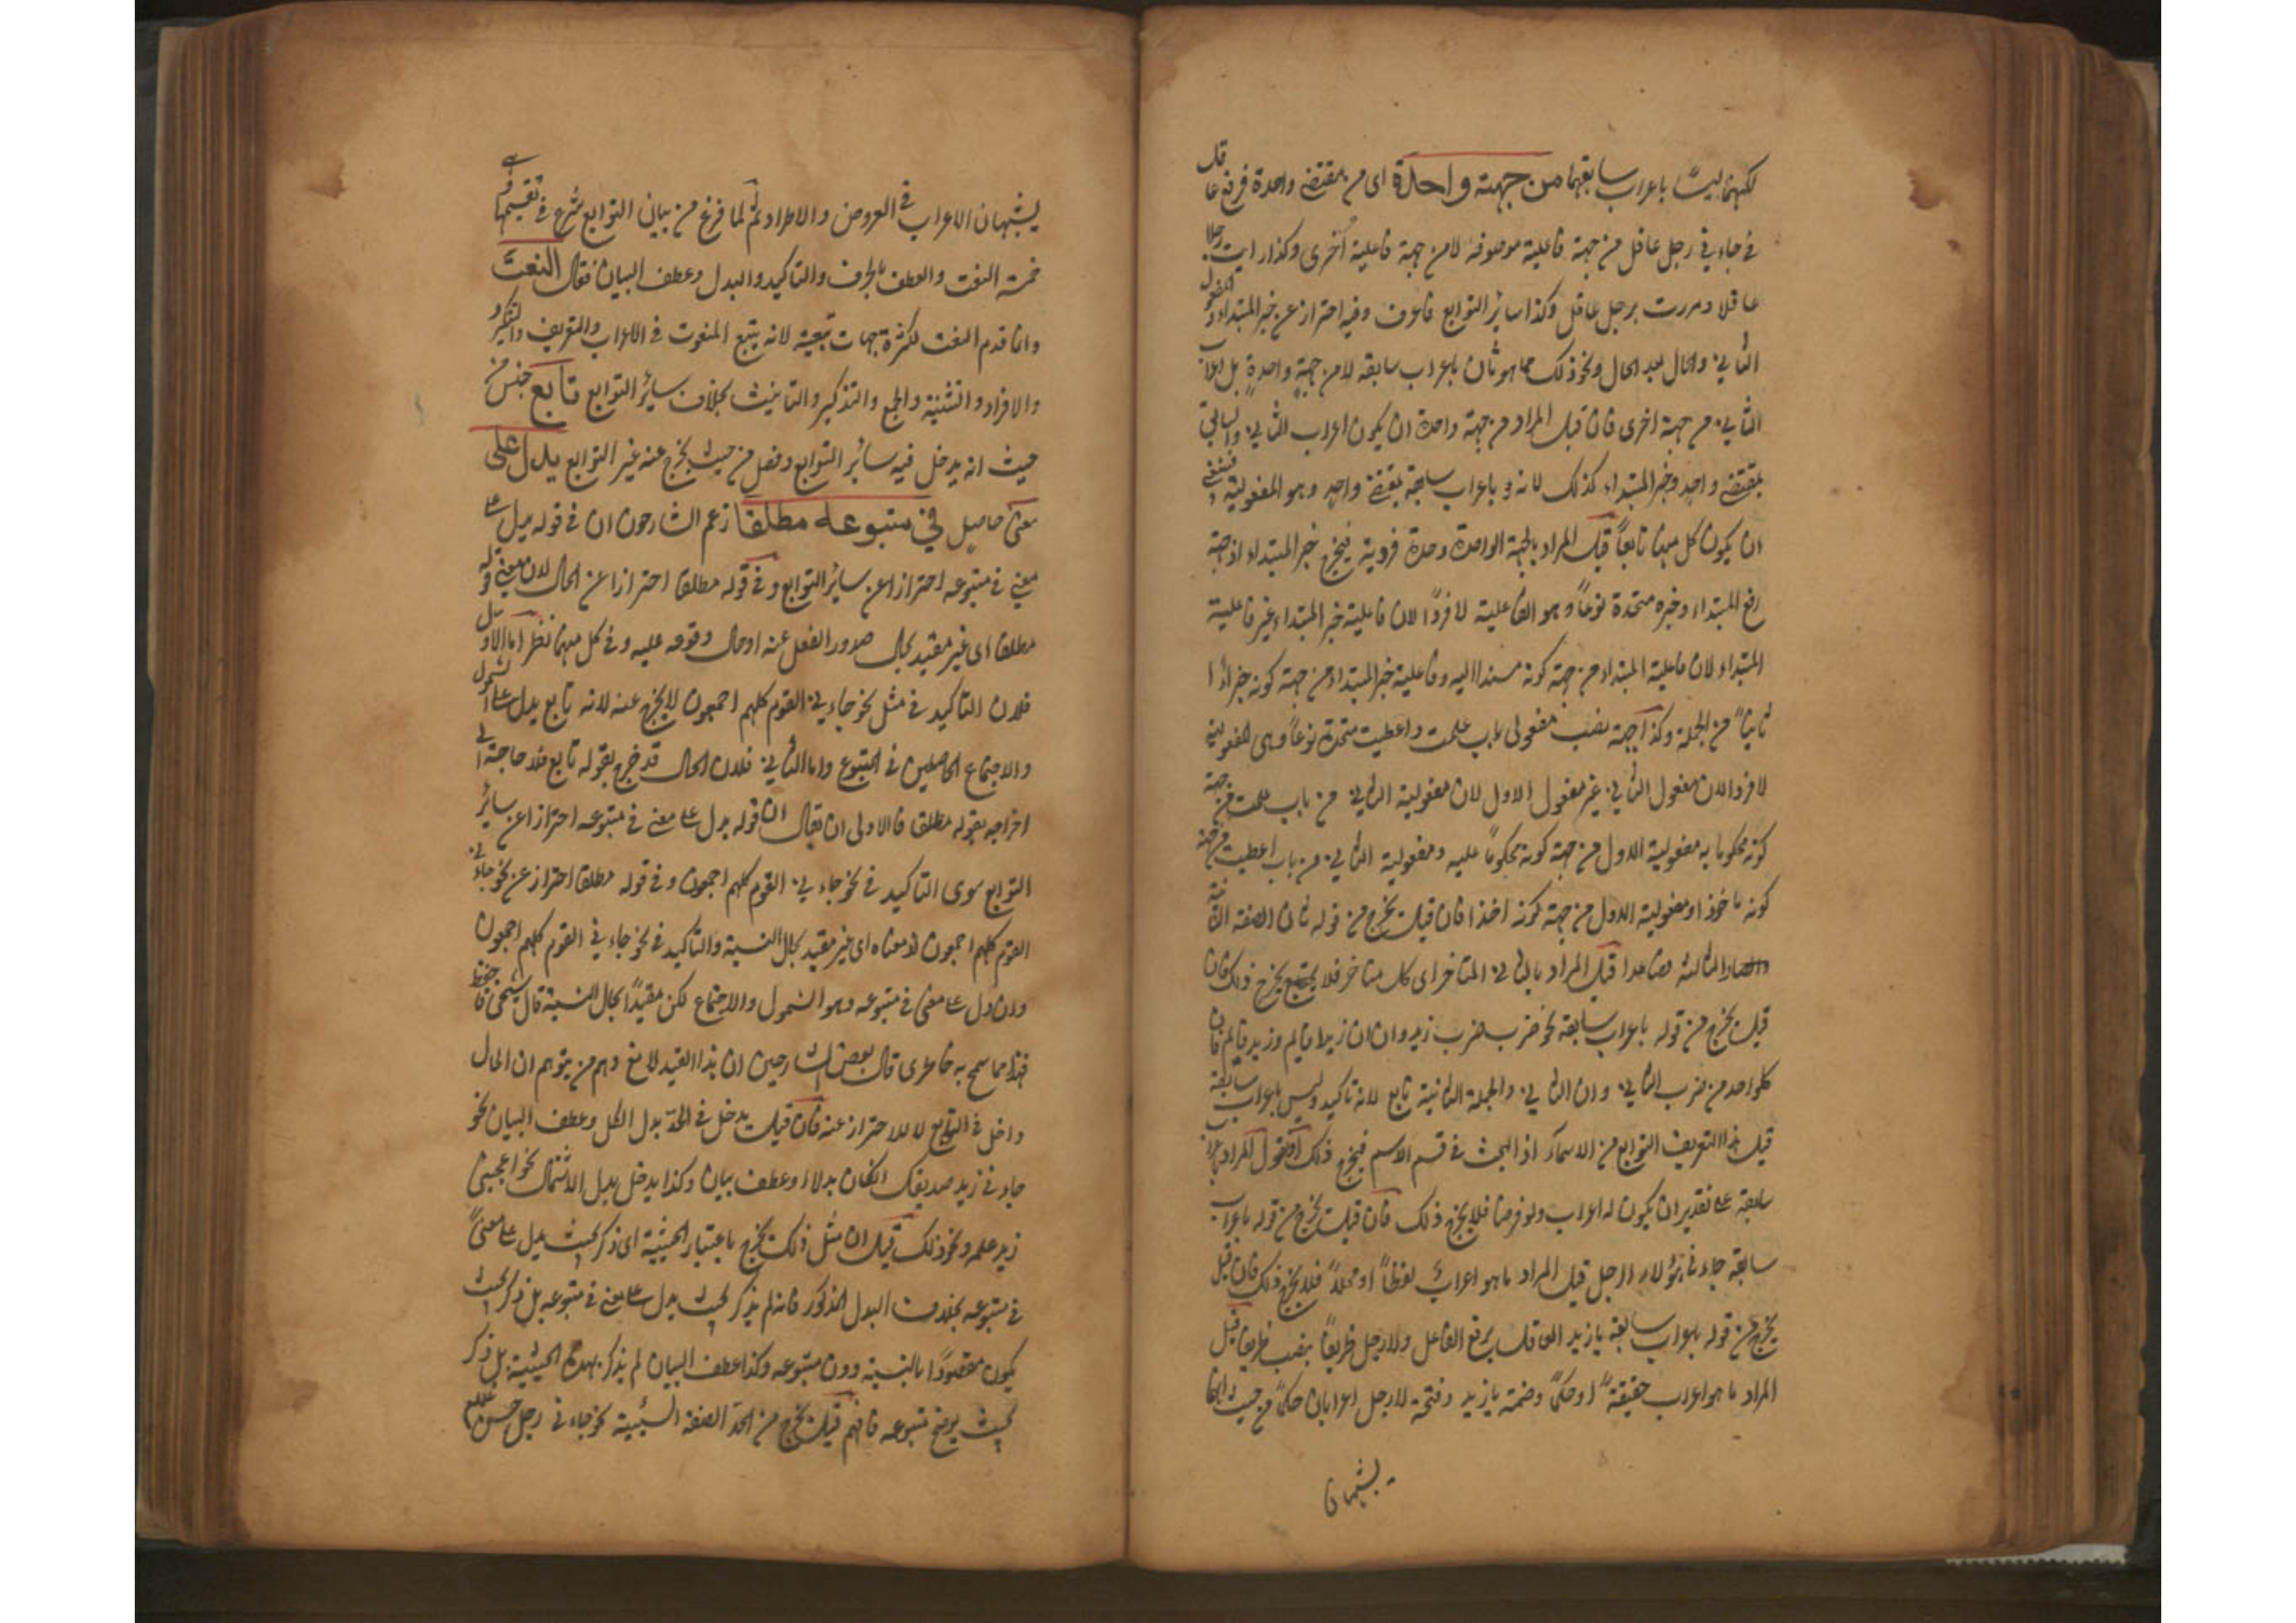 لكنهما ليست باعراب سابقهما من جهة واحدة اى من مقتضى واحدة فرفع عاقل
في جاءني رجل عاقل من جهة فاعلية موصوفه لا من جهة فاعلية اخرى وكذا رايت رجلا
عاقلا ومررت برجل عاقل وكذا ساير التوابع فاعرف وفيه احتراز عن خبر المبتداء والمفعول
الثاني والحال بعد الحال ونحو ذلك مما هو ثان باعراب سابقه لا من جهة واحدة بل اعراب
الثاني من جهة اخرى فان قيل المراد من جهة واحدة ان يكون اعراب الثاني والسابق
بمقتضى واحد وخبر المبتداء كذلك لانه باعراب سابقه بمقتضى واحد وهو المفعولية فينبغي
ان يكون كل منهما تابعاً قيل المراد بالجهة الواحدة وحدة فردية فيخرج خبر المبتداء اذ جهة
رفع المبتداء وخبره متحدة نوعاً وهو الفاعلية لا فردًا لان فاعلية خبر المبتداء غير فاعلية
المبتداء لان فاعلية المبتداء من جهة كونه مسندا اليه وفاعلية خبر المبتداء من جهة كونه جزأ
ثانياً من الجملة وكذا جهة نصب مفعولى باب علمت واعطيت متحدة نوعاً وهى المفعولية
لا فردا لان مفعول الثاني غير مفعول الاول لان مفعولية الثاني من باب علمت من جهة
كونه محكوما به مفعولية الاول من جهة كونه محكوماً عليه ومفعولية الثاني من باب اعطيت من جهة
كونه ماخوذا ومفعولية الاول من جهة كونه اخذا فان قيل يخرج من قوله ثان الصفة الثانية
والثالثة فصاعدا قيل المراد بالثاني المتاخر اى كل متاخر فلا يخرج ذلك فان
قيل يخرج من قوله باعراب سابقه نحو ضرب ضرب زيد وان ان زيدا قايم وزيد قايم فان
كلواحد من ضرب الثاني وان الثاني والجملة الثانية تابع لانه تاكيد وليس باعراب سابقه
قيل هذا التعريف التوابع من الاسماء اذ البحث في قسم الاسم فيخرج ذلك او نقول المراد باعراب
سابقه على تقدير ان يكون له اعراب ولو فرضا فلا يخرج ذلك فان قيل يخرج من قوله باعراب
سابقه جاءني هؤلاء الرجل قيل المراد ما هو اعراب لفظاً او محلاً فلا يخرج ذلك فان قيل
يخرج من قوله باعراب سابقه يا زيد العاقل برفع العاقل ولا رجل ظريفاً بنصب ظريفا قيل
المراد ما هو اعراب حقيقةً او حكماً وضمة يا زيد وفتحة لا رجل اعرابان حكماً من حيث انهما
يشبهان
يشبهان الاعراب في العروض والاطراد ثم لما فرغ من بيان التوابع شرع في تقسيمها وهي
خمسة النعت والعطف بالحرف والتاكيد والبدل وعطف البيان فقال النعت
وانما قدم النعت لكثرة جهات تبعيته لانه يتبع المنعوت في الاعراب والتعريف والتنكير
والافراد والتثنية والجمع والتذكير والتانيث بخلاف ساير التوابع تابع جنس من
حيث انه يدخل فيه سائر التوابع وفصل من حيث يخرج عنه غير التوابع يدل على
معنى حاصل في متبوعه مطلقا زعم الشارحون ان في قوله يدل على
معنى في متبوعه احترازا عن سائر التوابع وفي قوله مطلقا احترازا عن الحال لان معنى قوله
مطلقا اى غير مقيد بحال صدور الفعل عنه او حال وقوعه عليه وفي كل منهما نظر اما الاول
فلان التاكيد في مثل نحو جاءني القوم كلهم اجمعون لا يخرج عنه لانه تابع يدل على الشمول
والاجتماع الحاصلين في المتبوع واما الثاني فلان الحال قد خرج بقوله تابع فلا حاجة الى
اخراجه بقوله مطلقا فالاولى ان يقال ان قوله يدل على معنى في متبوعه احتراز عن سائر
التوابع سوى التاكيد في نحو جاءني القوم كلهم اجمعون وفي قوله مطلقا احتراز عن نحو جاءني
القوم كلهم اجمعون اذ معناه اى غير مقيد بحال النسبة والتاكيد في نحو جاءني القوم كلهم اجمعون
وان دل على معنى في متبوعه وهو الشمول والاجتماع لكن مقيدًا بحال النسبة قال شيخى
فهذا مما سمح به خاطرى قال بعض الشارحين ان هذا القيد لدفع وهم من يتوهم ان الحال
داخل في التابع لا للاحتراز عنه فان قيل يدخل في الحد بدل الكل وعطف البيان نحو
جاءني زيد صديقك ان كان بدلا وعطف بيان وكذا يدخل بدل الاشتمال نحو اعجبني
زيد علمه ونحو ذلك قيل ان مثل ذلك يخرج باعتبار الحيثية اى ذكر بحيث يدل على معنىً
في متبوعه بخلاف البدل المذكور فانه لم يذكر بحيث يدل على معنى في متبوعه بل ذكر بحيث
يكون مقصودًا بالنسبة دون متبوعه وكذا عطف البيان لم يذكر بهذه الحيثية بل ذكر
بحيث يوضح متبوعه فافهم قيل يخرج من الحد الصفة السببية نحو جاءني رجل حسن غلامه